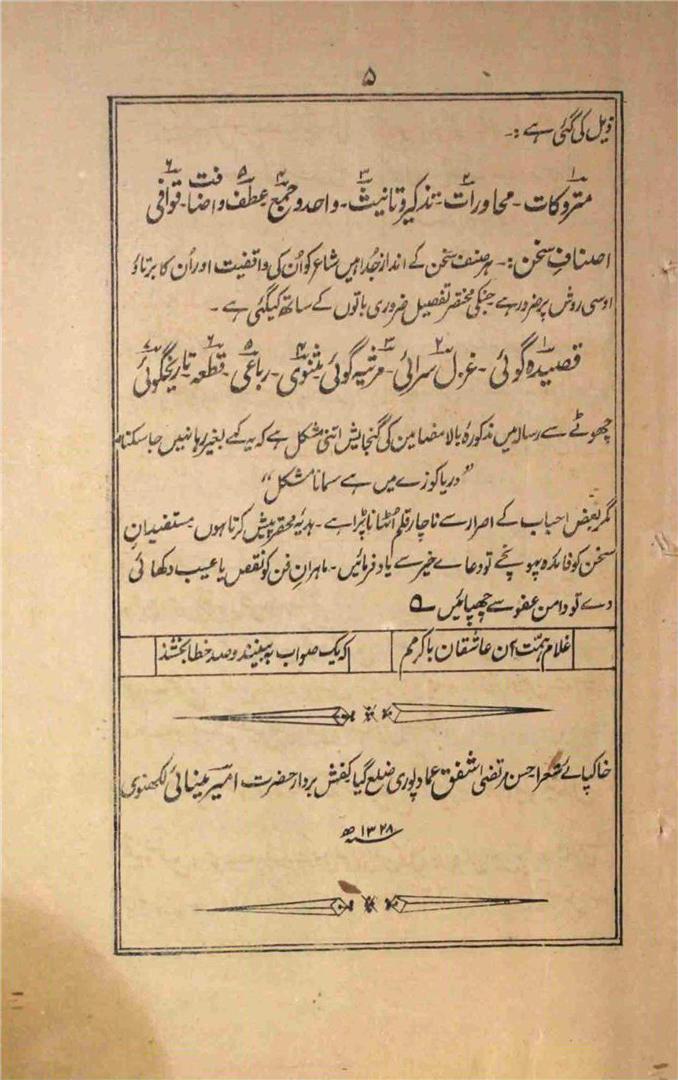 ۵
ذیل کی گئی ہے :-
۱ متروکات - ۲ محاورات - ۳ تذکیر و تانیث - ۴ واحد و جمع - ۵ عطف و اضافت - ۶ قوافی
اصنافِ سخن :- ہر صنف سخن کے انداز جُدا ہیں شاعر کو اُن کی واقفیت اور اُن کا برتاؤ
اوسی روش پر ضرور ہے جنکی مختصر تفصیل ضروری باتوں کے ساتھ کیگئی ہے ۔
۱ قصیدہ گوئی - ۲ غزل سرائی - ۳ مرثیہ گوئی - ۴ مثنوی - ۵ رباعی - ۶ قطعہ - ۷ تاریخگوئی
چھوٹے سے رسالہ میں مذکورۂ بالا مضامین کی گنجایش اتنی مشکل ہے کہ یہ کہے بغیر رہا نہیں جا سکتا
"دریا کوزے میں ہے سمانا مشکل"
مگر بعض احباب کے اصرار سے ناچار قلم اُٹھانا پڑا ہے ۔ ہدیۂ محقر پیش کرتا ہوں مستفیدانِ
سخن کو فائدہ پہونچے تو دعاے خیر سے یاد فرمائیں ۔ ماہرانِ فن کو نقص یا عیب دکھائی
دے تو دامن عفو سے چھپائیں ؎
غلام ہمّت آن عاشقان با کرمم
که یک صواب به بینند و صد خطا بخشند
خاکپائے شعرا حسن مرتضیٰ شفق عماد پوری ضلع گیا کفش بردار حضرت امیر مینائی لکھنوی
۱۳۲۸ھ